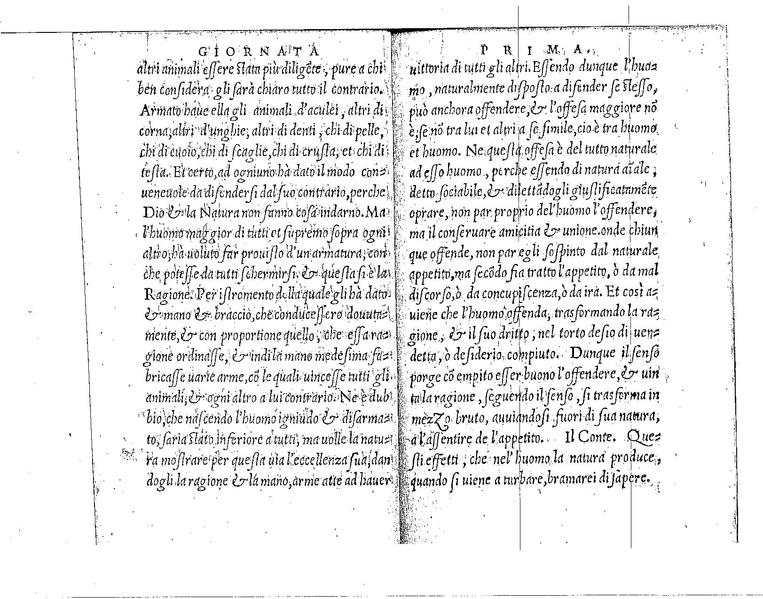 GIORNATA
altri animali essere stata piu diligẽte, pure a chi
ben considera gli sarà chiaro tutto il contrario.
Armato haue ella gli animali d'aculei, altri di
corna, altri d'unghie, altri di denti, chi di pelle,
chi di cuoio, chi di scaglie, chi di crusta, et chi di
testa. Et certo, ad ogniuno ha dato il modo con=
ueneuole da difendersi dal suo contrario, perche
Dio & la Natura non fanno cosa indarno. Ma
l'huomo maggior di tutti et supremo sopra ogni
altro, ha uoluto far prouisto d'un armatura, con
che potesse da tutti schermirsi. & questa si è la
Ragione. Per istromento della quale gli hà dato
& mano & braccio, che conducessero douuta=
mente, & con proportione quello, che essa ra=
gione ordinasse, & indi la mano medesima fa=
bricasse uarie arme, cõ le quali uincesse tutti gli
animali, & ogni altro a lui contrario. Ne è dub
bio, che nascendo l'huomo igniudo & disarma=
to, saria stato inferiore a tutti, ma uolle la natu=
ra mostrare per questa uia l'eccellenza sua, dan
dogli la ragione & la mano, arme atte ad hauer
PRIMA.
uittoria di tutti gli altri. Essendo dunque l'huo=
mo, naturalmente disposto a difender se stesso,
può anchora offendere, & l'offesa maggiore nõ
è, se nõ tra lui et altri a se simile, cio è tra huomo
et huomo. Ne questa offesa è del tutto naturale
ad esso huomo, perche essendo di natura aĩale,
detto sociabile, & dilettãdogli giustificatamẽte
oprare, non par proprio del'huomo l'offendere,
ma il conseruare amicitia & unione. onde chiun
que offende, non par egli sospinto dal naturale
appetito, ma secõdo fia tratto l'appetito, ò da mal
discorso, ò da concupiscenza, ò da ira. Et così a=
uiene che l'huomo offenda, trasformando la ra=
gione, & il suo dritto, nel torto desio di uen=
detta, ò desiderio compiuto. Dunque il senso
porge cõ empito esser buono l'offendere, & uin
ta la ragione, seguendo il senso, si trasforma in
mezzo bruto, auuiandosi fuori di sua natura,
a l'assentire de l'appetito. Il Conte. Que=
sti effetti, che nel'huomo la natura produce,
quando si uiene a turbare, bramarei di sapere.